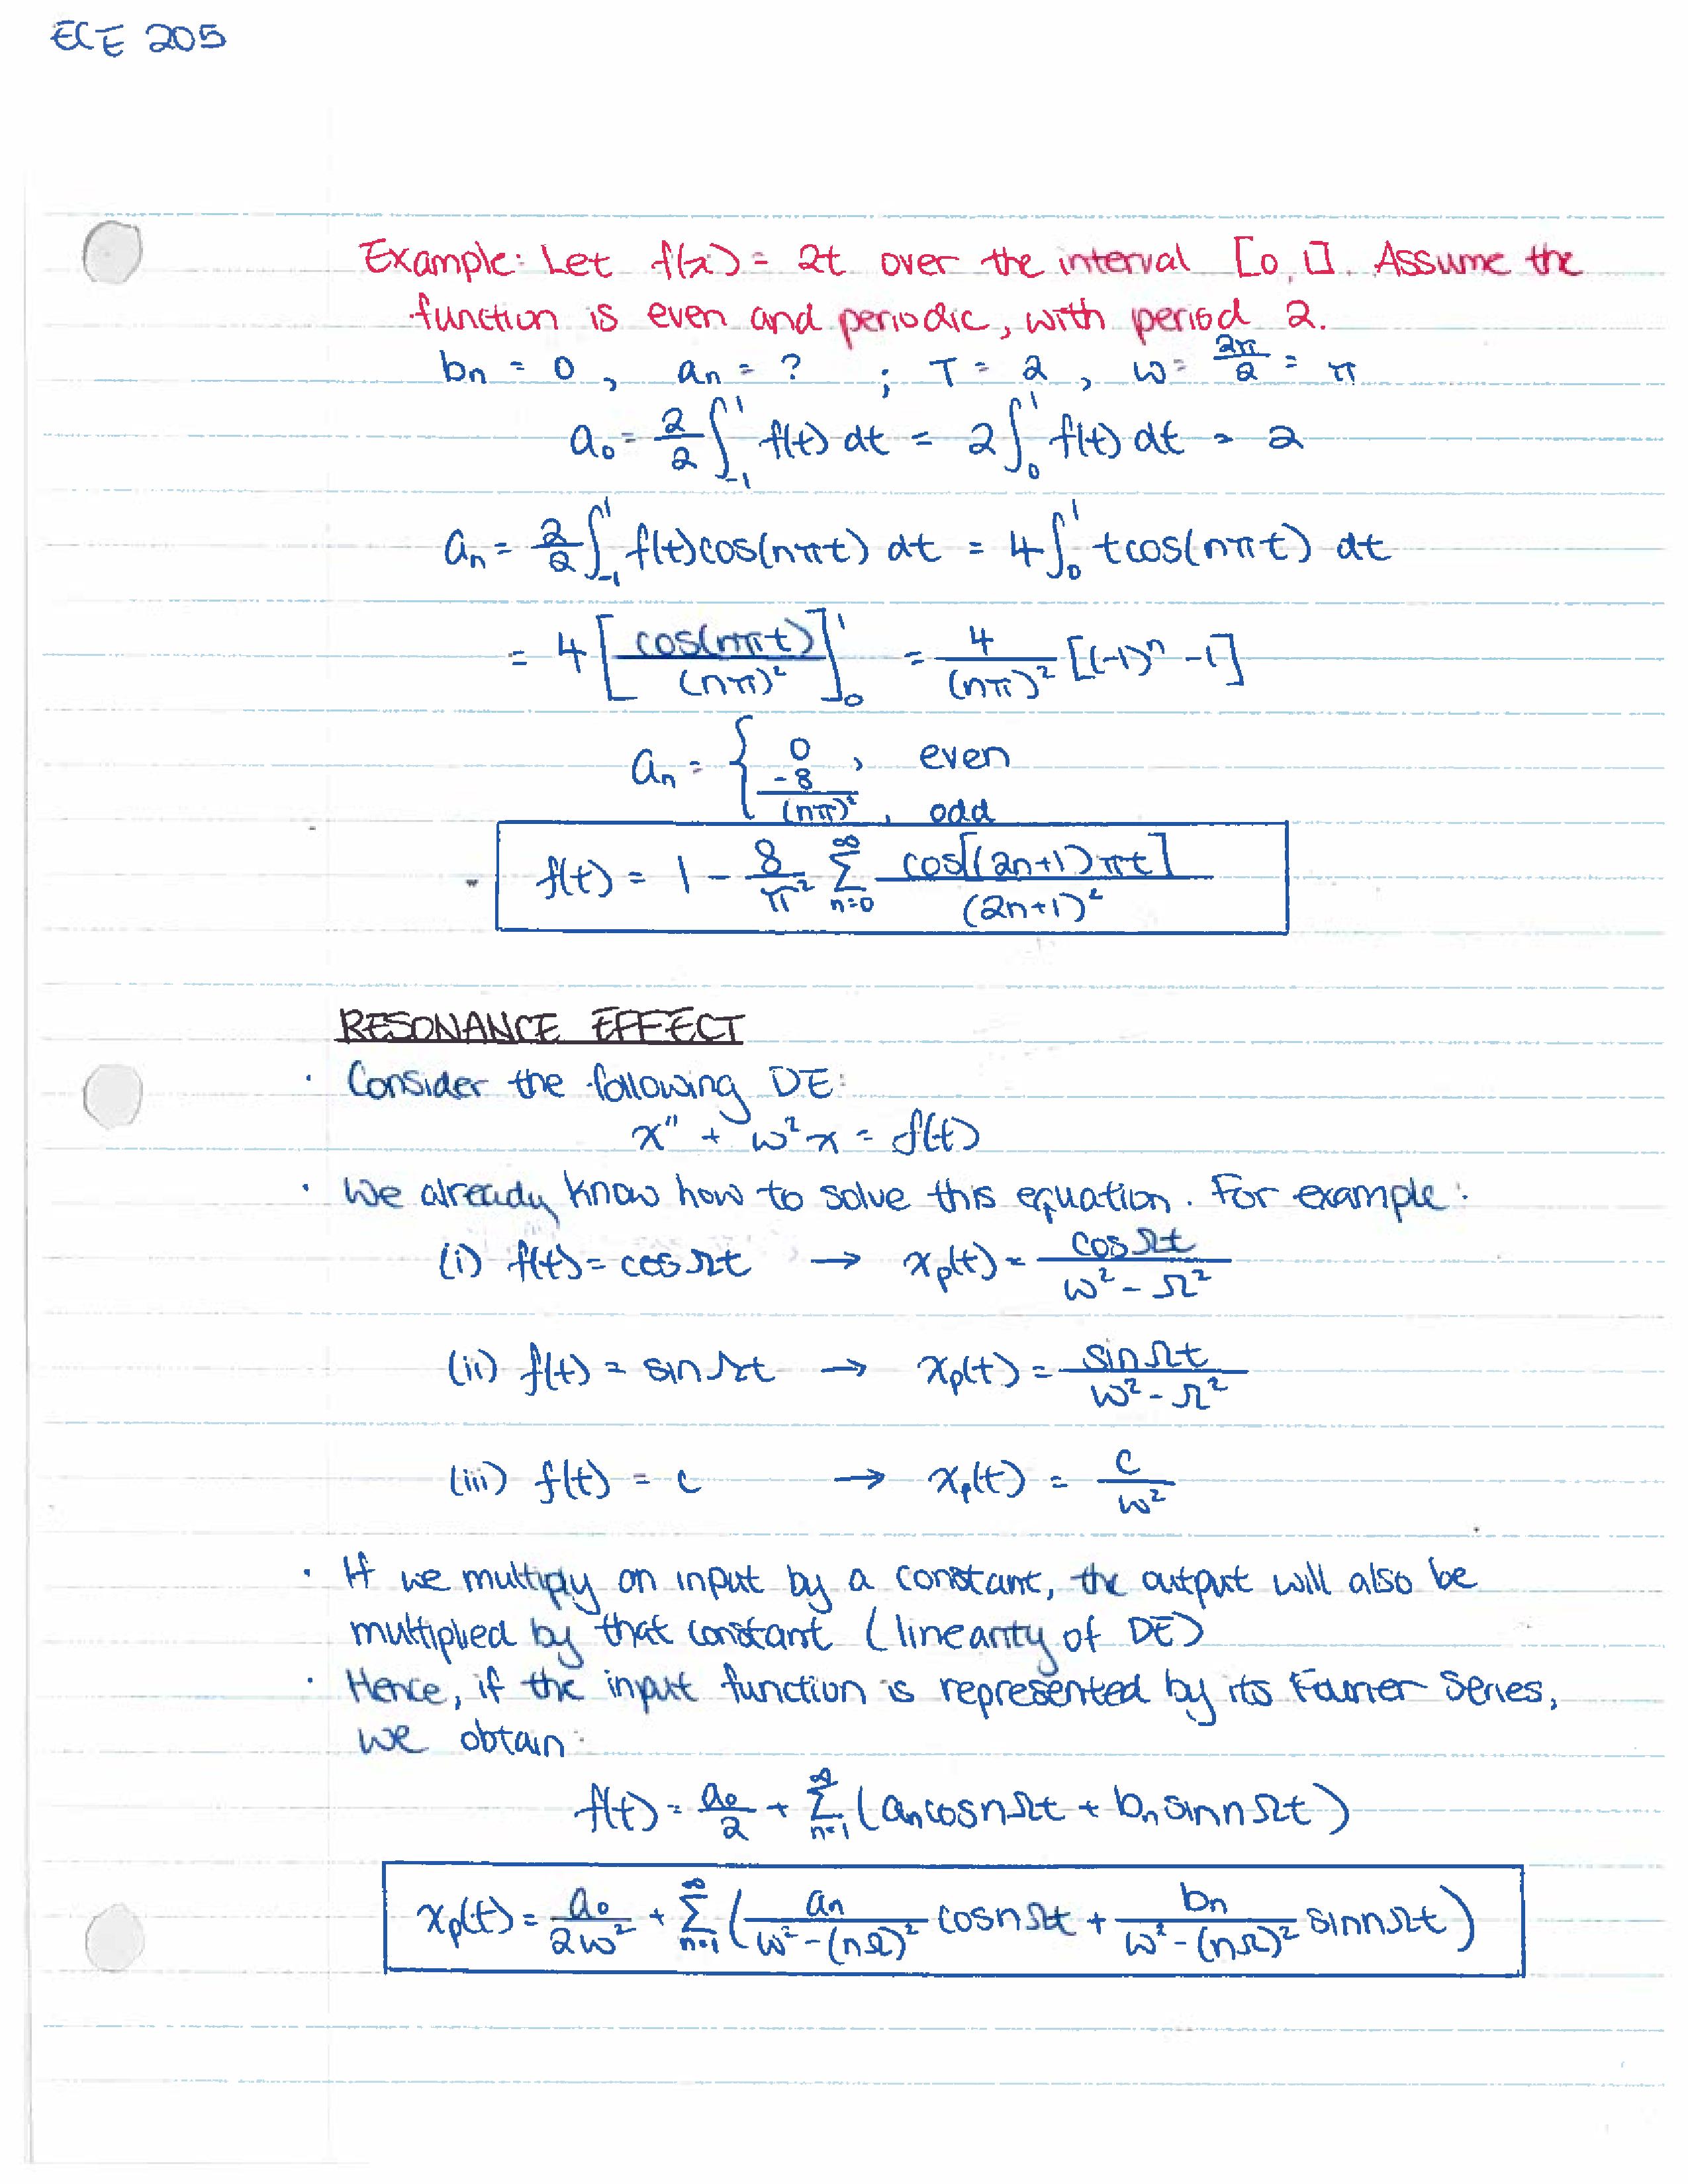 ECE 205
Example: Let f(x) = 2t over the interval [0,1]. Assume the
function is even and periodic, with period 2.
bn = 0, an = ? ; T = 2, ω = 2π/2 = π
a₀ = 2/2 ∫₋₁¹ f(t) dt = 2∫₀¹ f(t) dt = 2
an = 2/2 ∫₋₁¹ f(t)cos(nπt) dt = 4∫₀¹ tcos(nπt) dt
= 4[cos(nπt)/(nπ)²]₀¹ = 4/(nπ)² [(-1)ⁿ -1]
an = { 0, even
-8/(nπ)², odd
f(t) = 1 - 8/π² ∞Σn=0 cos[(2n+1)πt]/(2n+1)²
RESONANCE EFFECT
· Consider the following DE:
x″ + ω²x = f(t)
· We already know how to solve this equation. For example:
(i) f(t) = cosΩt → xp(t) = cosΩt/ω² - Ω²
(ii) f(t) = sinΩt → xp(t) = sinΩt/ω² - Ω²
(iii) f(t) = c → xp(t) = c/ω²
· If we multiply an input by a constant, the output will also be
multiplied by that constant (linearity of DE)
· Hence, if the input function is represented by its Fourier Series,
we obtain:
f(t) = a₀/2 + ∞Σn=1 (an cosnΩt + bn sinnΩt)
xp(t) = a₀/2ω² + ∞Σn=1 (an/ω² - (nΩ)² cosnΩt + bn/ω² - (nΩ)² sinnΩt)